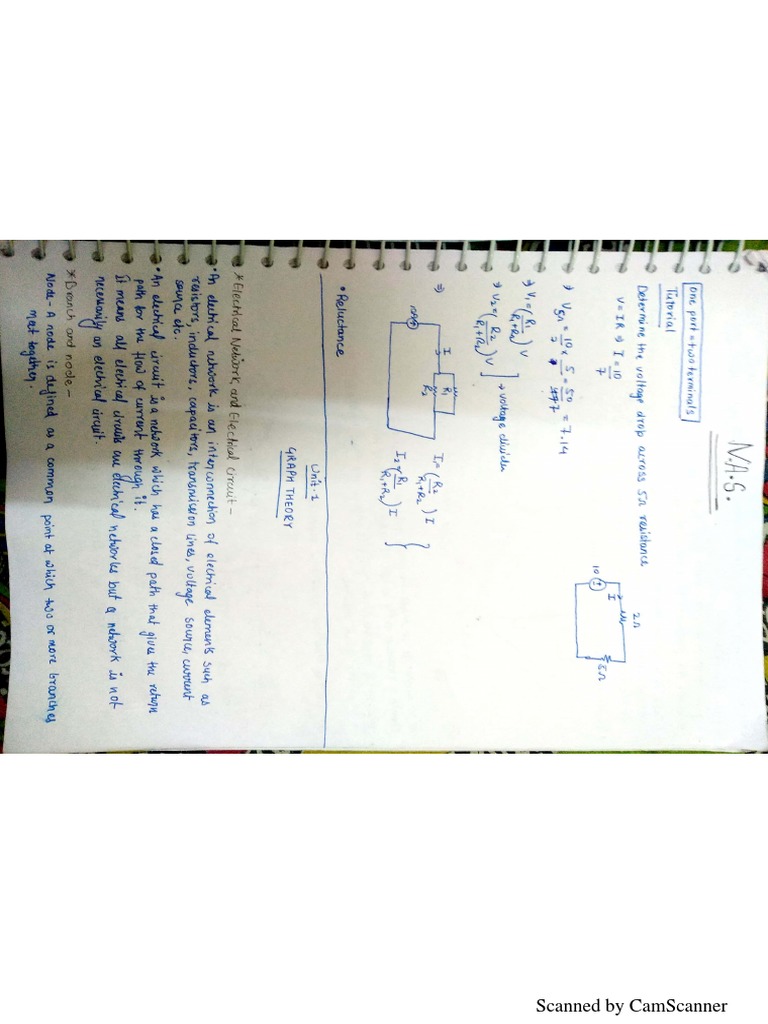 N.A.S.
one port = two terminals
Tutorial
Determine the voltage drop across 5Ω resistance
V = IR ⇒ I = 10/7
2Ω
10
I
5Ω
⇒ V5Ω = 10/7 × 5/ = 50/7 = 7.14
⇒ V1 = (R1/R1+R2) V
⇒ V2 = (R2/R1+R2) V ] → voltage divider
⇒
I
R1
R2
I1 = (R2/R1+R2) I
I2 = (R1/R1+R2) I }
• Reluctance
Unit-1
GRAPH THEORY
* Electrical Network and Electrical circuit -
• An electrical network is an interconnection of electrical elements such as
resistors, inductors, capacitors, transmission lines, voltage source, current
source etc.
• An electrical circuit is a network which has a closed path that give the return
path for the flow of current through it.
It means all electrical circuits are electrical networks but a network is not
necessarily an electrical circuit.
* Branch and node -
Node - A node is defined as a common point at which two or more branches
meet together.
Scanned by CamScanner